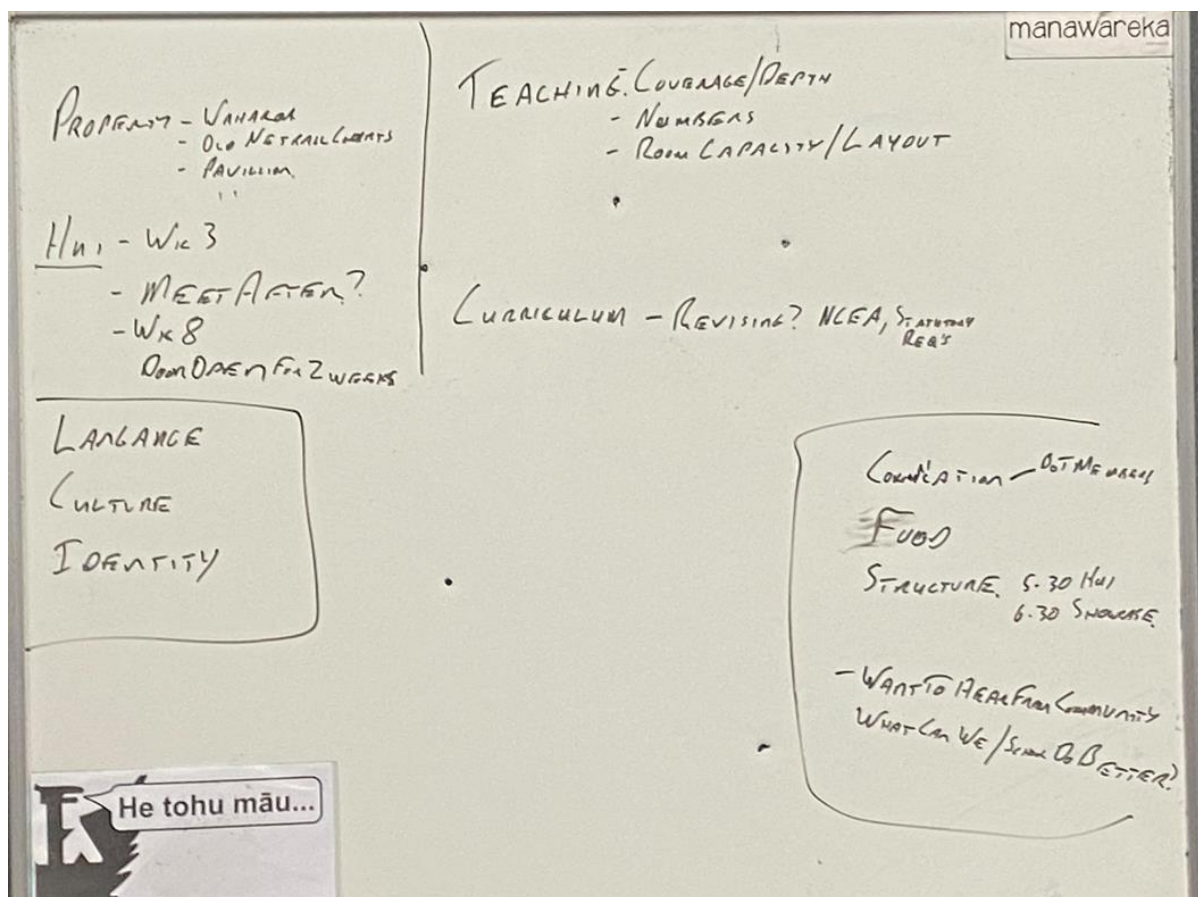 manawareka
PROPERTY - WAHAROA
- OLD NETBALL COURTS
- PAVILLION
HUI - WK 3
- MEET AFTER?
- WK 8
DOOR OPEN FOR 2 WEEKS
TEACHING: COVERAGE/DEPTH
- NUMBERS
- ROOM CAPACITY/LAYOUT
CURRICULUM - REVISING? NCEA, STATUTORY
REQ'S
LANGANGE
CULTURE
IDENTITY
- BOT MEMBERS
FOOD
STRUCTURE. 5.30 HUI
6.30 SHOWCASE.
- WANT TO HEAR FROM COMMUNITY
WHAT CAN WE/SCHOOL DO BETTER?
He tohu māu...